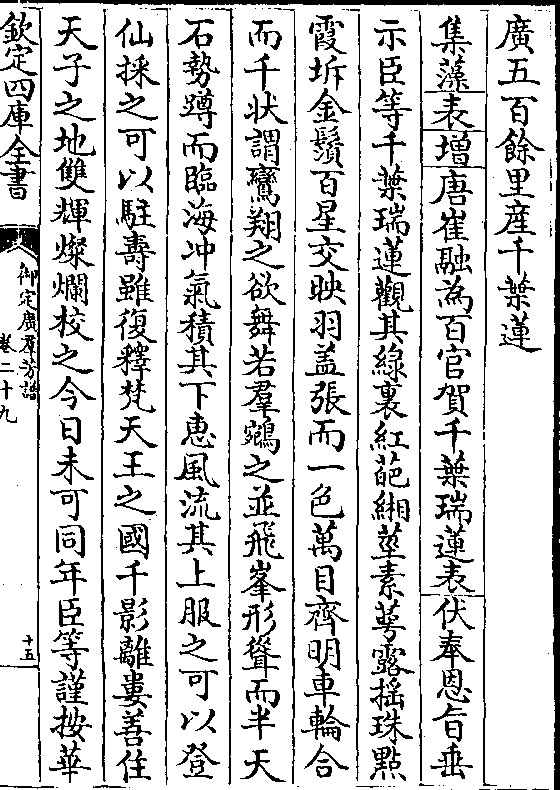 廣五百餘里産千葉蓮
集藻表增唐崔融為百官賀千葉瑞蓮表伏奉恩旨垂
示臣等千葉瑞蓮觀其綠裏紅葩緗莖素蕚露揺珠點
霞坼金鬚百星交映羽盖張而一色萬目齊明車輪合
而千状謂鸞翔之欲舞若羣鵷之並飛峯形聳而半天
石勢蹲而臨海冲氣積其下惠風流其上服之可以登
仙採之可以駐壽雖復釋梵天王之國千影離婁善住
天子之地雙輝燦爛校之今日未可同年臣等謹按華
欽定四庫全書
御定廣羣芳譜
卷二十九
十五